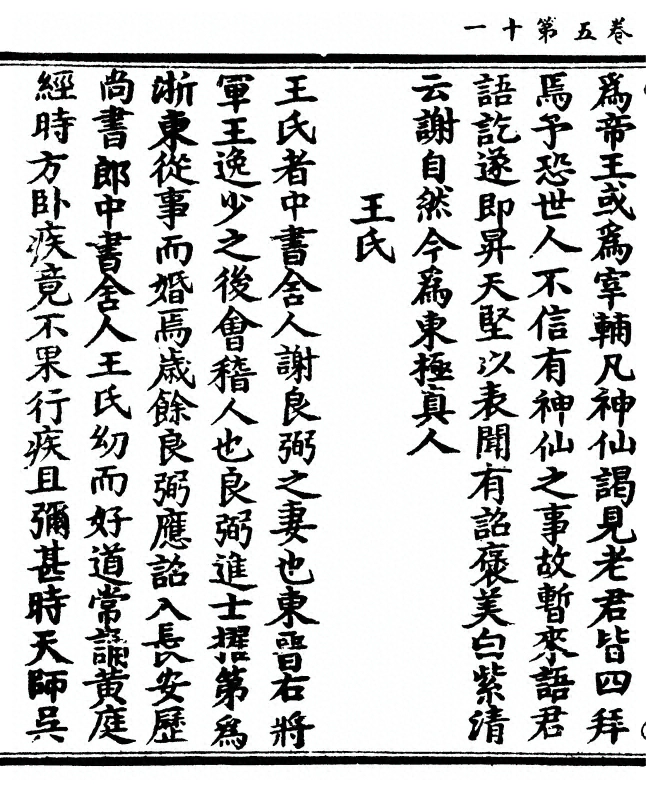 卷五第十一
爲帝王或爲宰輔凡神仙謁見老君皆四拜
焉予恐世人不信有神仙之事故暫來語君
語訖遂即昇天堅以表聞有詔襃美白紫清
云謝自然今爲東極真人
王氏
王氏者中書舍人謝良弼之妻也東晉右將
軍王逸少之後會稽人也良弼進士擢第爲
浙東從事而婚焉歲餘良弼應詔入長安歷
尚書郎中書舍人王氏幼而好道常誦黃庭
經時方卧疾竟不果行疾且彌甚時天師吳